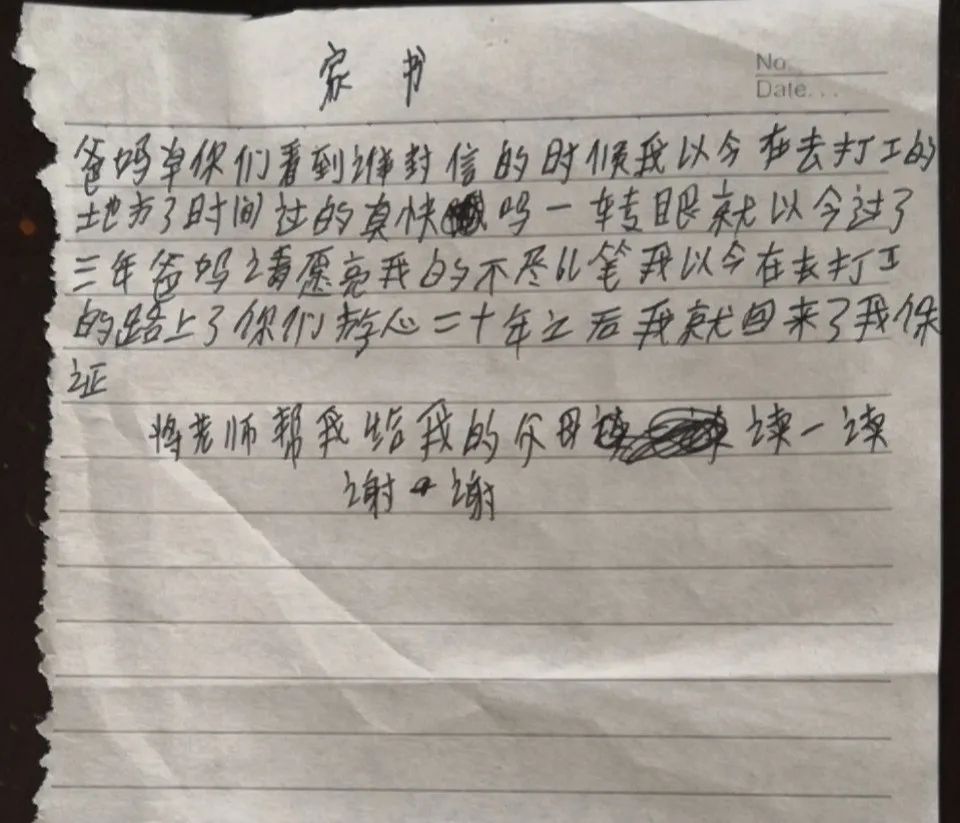 家书
No.
Date...
爸妈单你们看到谁封信的时候我以今在去打工的
地方了时间过的真快吗一转眼就以今过了
三年爸妈请愿亮我的不尽比笔我以今在去打工
的路上了你们放心二十年之后我就回来了我保
证
将老师帮我给我的父母读一读
谢谢